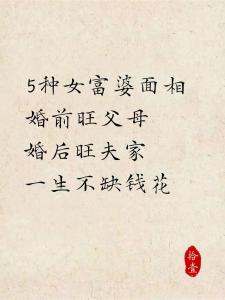 5种女富婆面相
婚前旺父母
婚后旺夫家
一生不缺钱花
拾壹